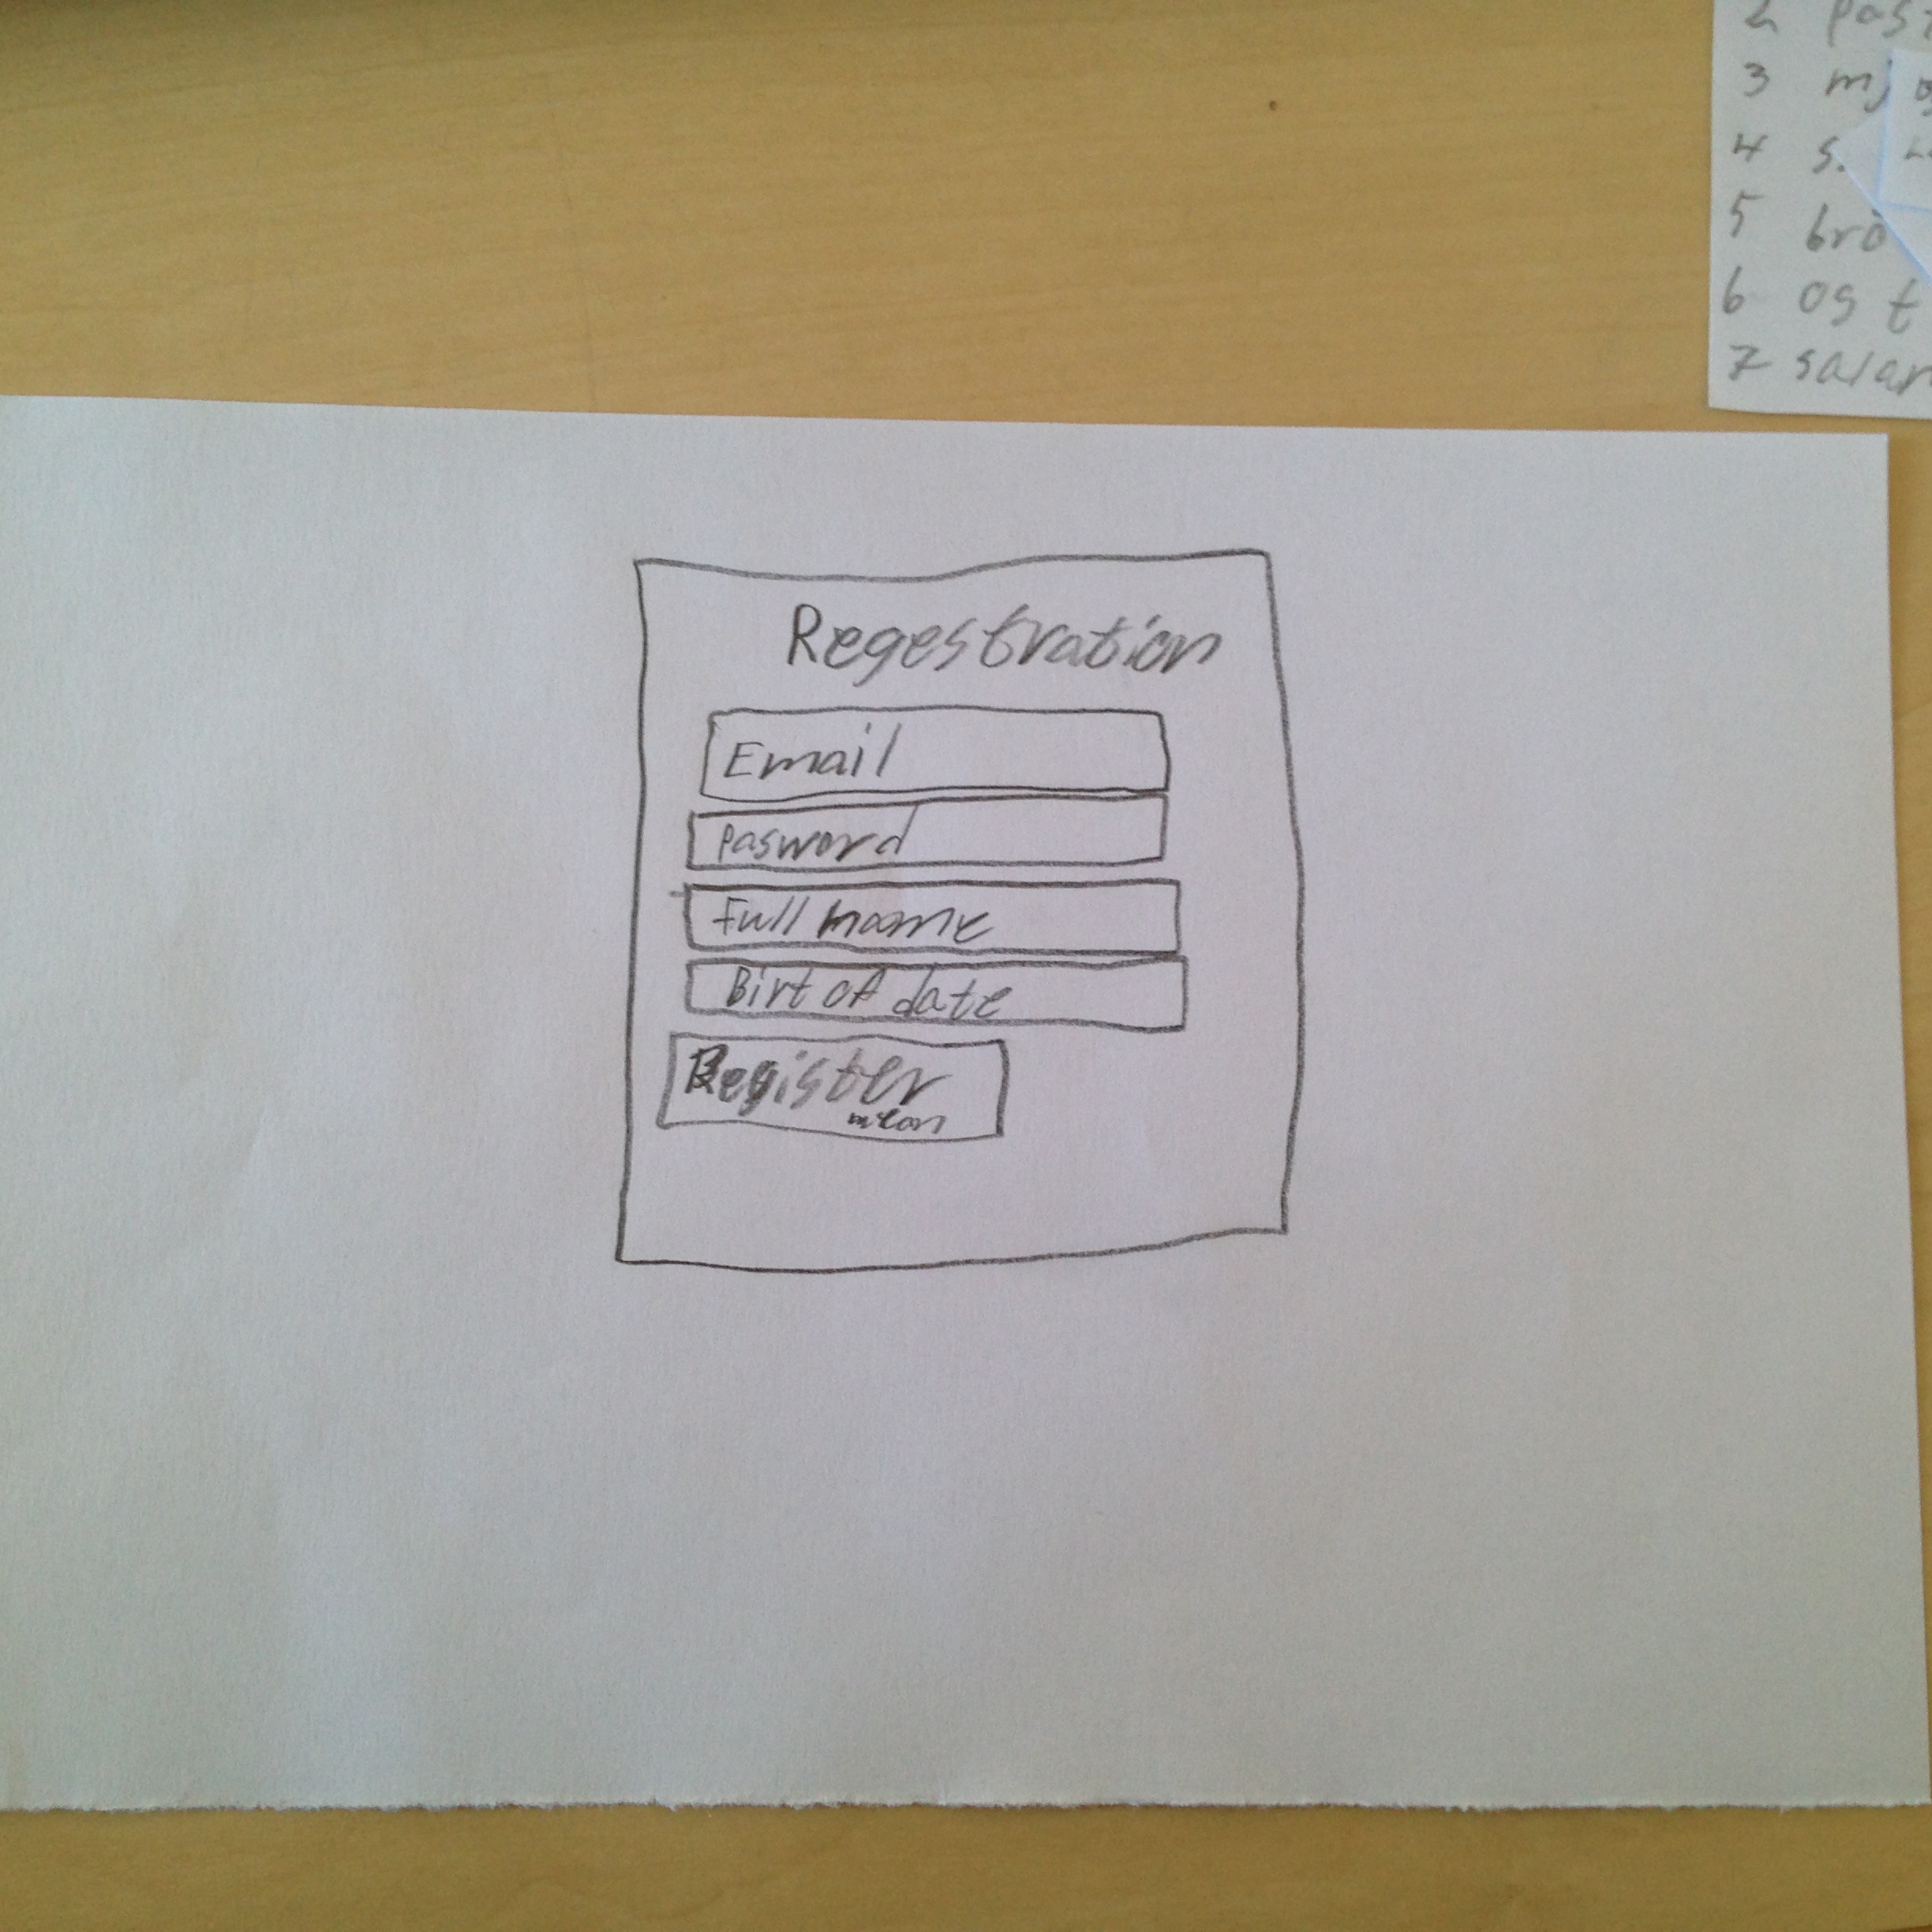 2 past
3 mj
4 s.
5 brö
6 ost
7 salan
Regestration
Email
Pasword
Full name
Birt of date
Register